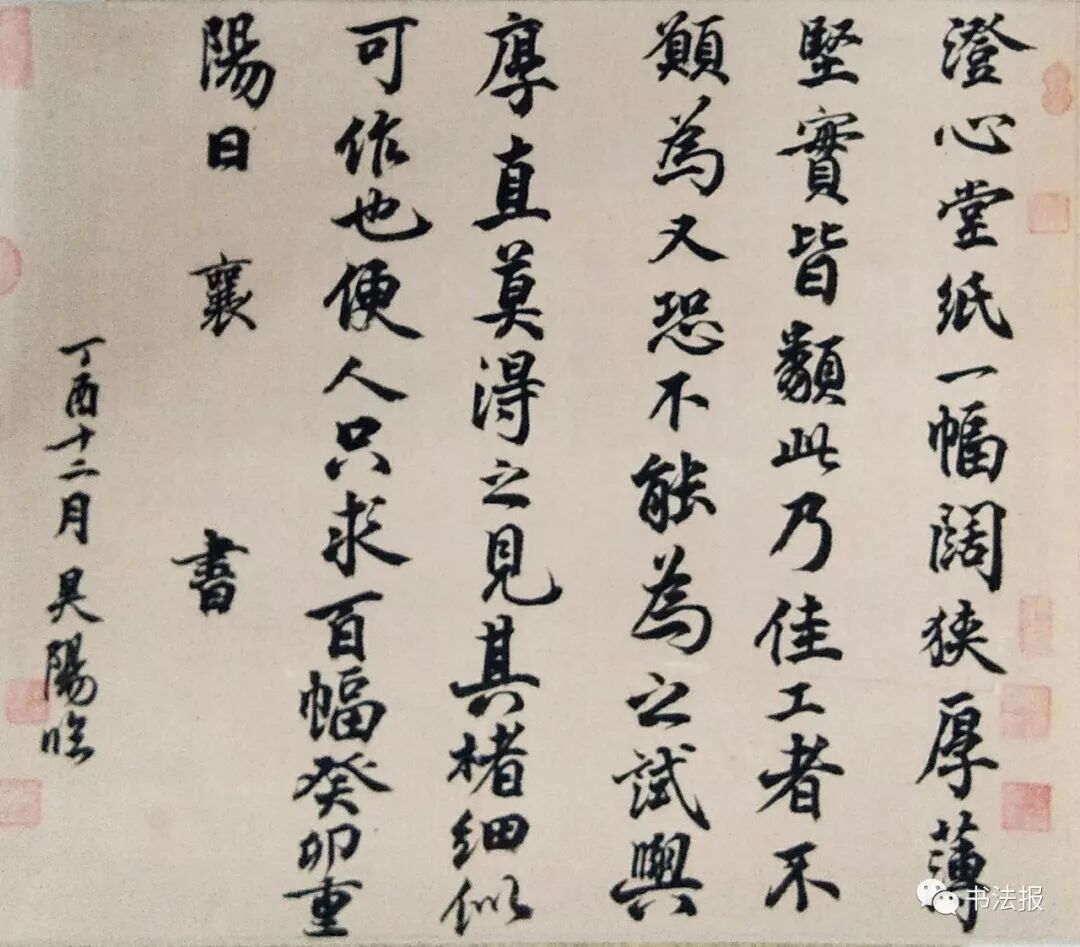 澄心堂紙一幅闊狹厚薄
堅實皆類此乃佳工者不
願為又恐不能為之試與
厚直莫得之見其楮細似
可作也便人只求百幅癸卯重
陽日 襄 書
丁酉十二月 陽臨
书法报